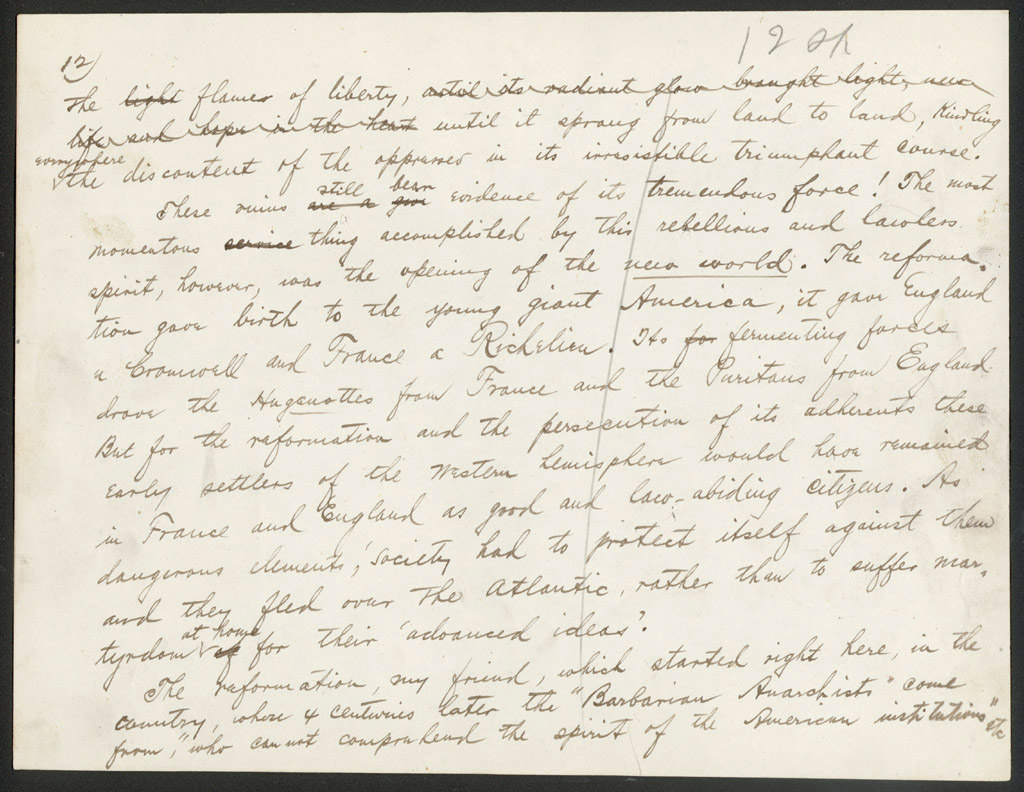 12 
12)
The light flames of liberty, until its radiant glow brought light, new
life and hope in the heart until it sprang from land to land, Kindling
everywhere
the discontent of the oppressed in its irresistible triumphant course.
still bear
These ruins are a give evidence of its tremendous force! The most
momentous service thing accomplished by this rebellious and lawless
spirit, however, was the opening of the new world. The reforma-
tion gave birth to the young giant America, it gave England
a Cromwell and France a Richelieu. Its for fermenting forces
drove the Hugenottes from France and the Puritans from England.
But for the reformation and the persecution of its adherents these
early settlers of the Western hemisphere would have remained
in France and England as good and law-abiding citizens. As
dangerous elements, society had to protect itself against them
and they fled over the Atlantic, rather than to suffer mar-
at home
tyrdom for their 'advanced ideas'.
The reformation, my friend, which started right here, in the
country, where 4 centuries later the "Barbarian Anarchists" come
from, "who can not comprehend the spirit of the American institutions" etc